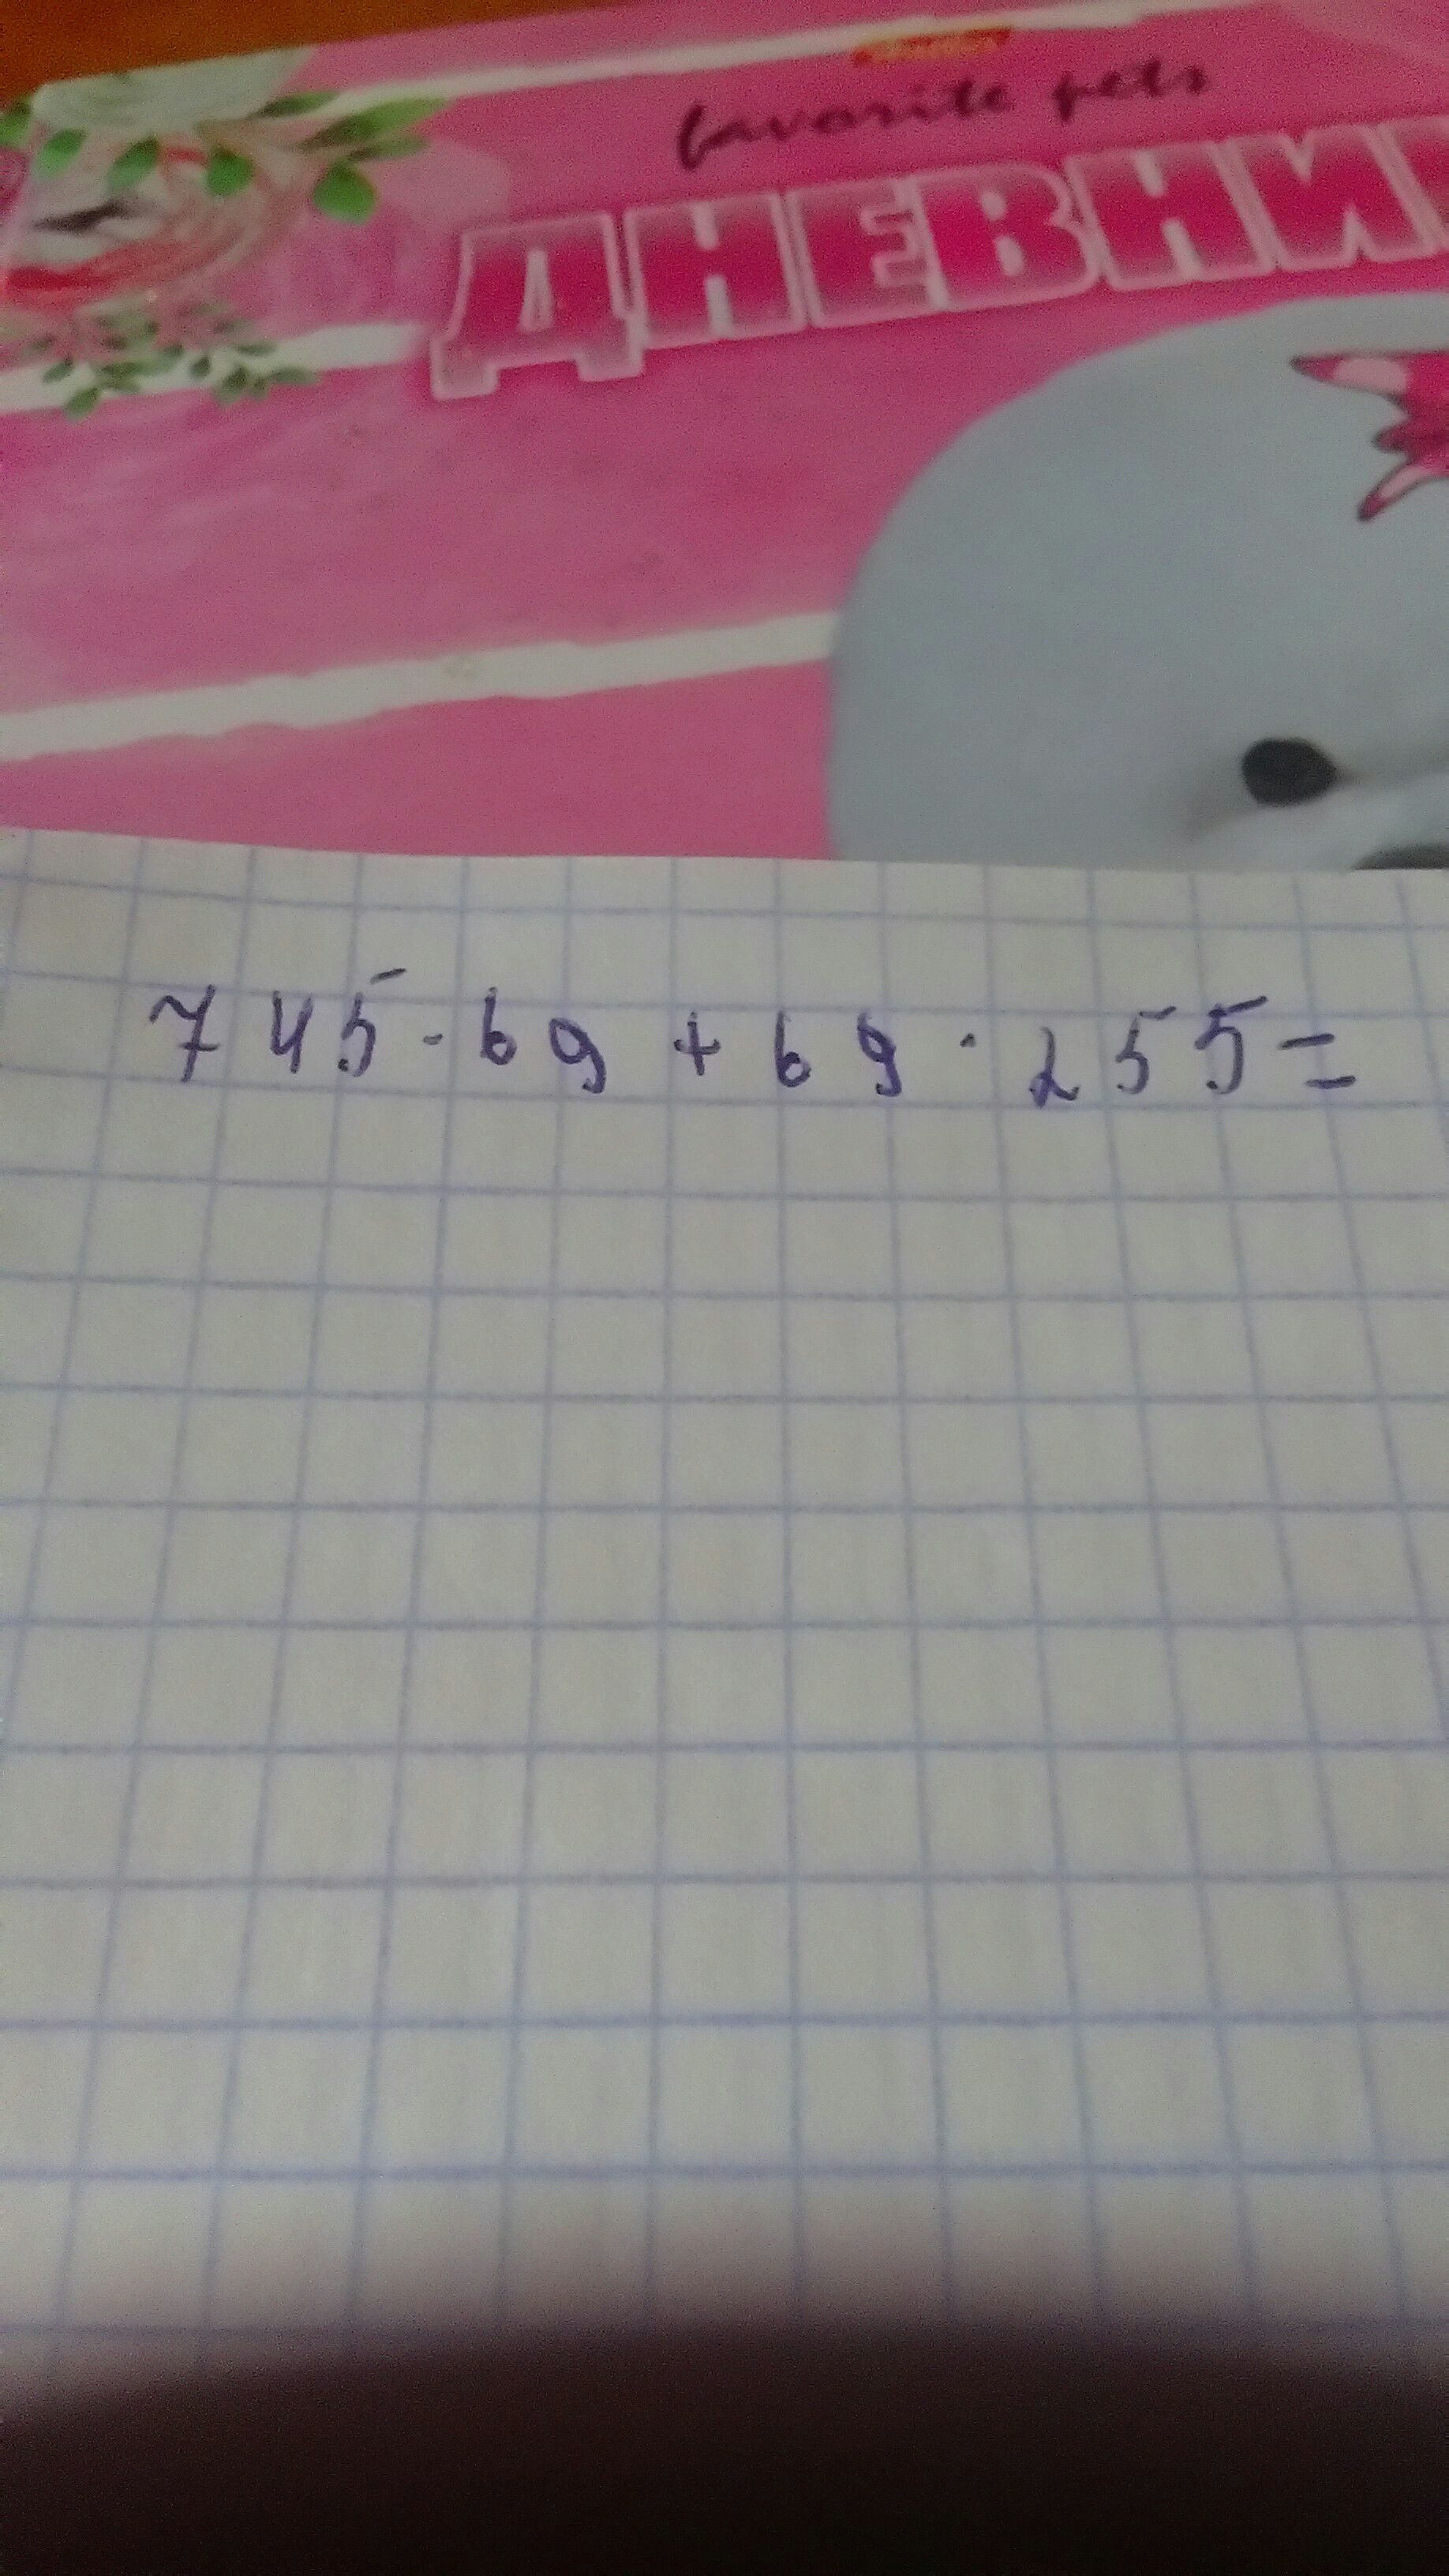 favorite pets
ДНЕВНИ
745·69+69·255=